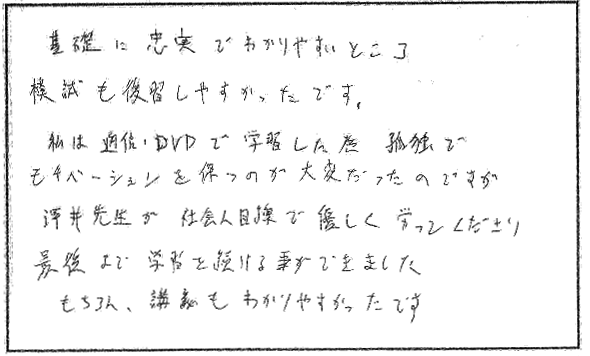 基礎に忠実でわかりやすいところ
模試も復習しやすかったです。
私は通信・DVDで学習した為 孤独で
モチベーションを保つのが大変だったのですが
澤井先生が 社会人目線で優しく 労ってくださり
最後まで学習を続ける事ができました
もちろん、講義もわかりやすかったです